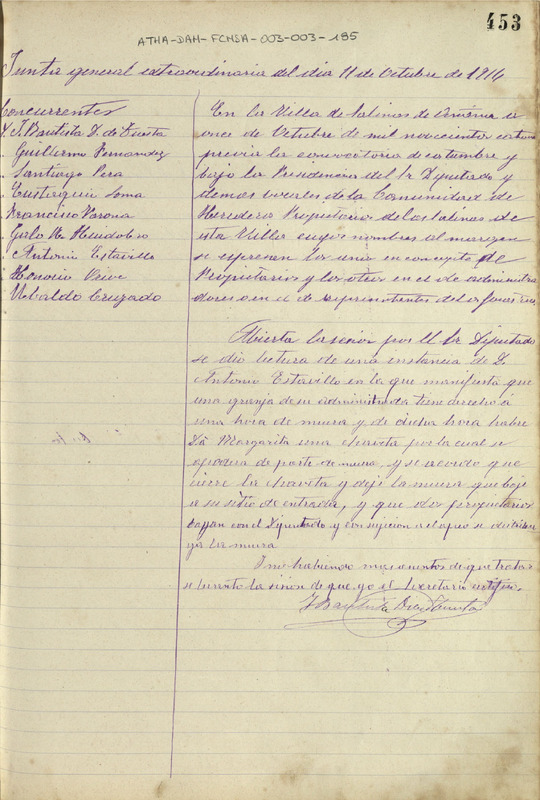 453
ATHA-DAH-FCHSA-003-003-195
Junta general extraordinaria del dia 11 de Octubre de 1914
Concurrentes
J. Bautista D. de Tuesta
" Guillermo Fernandez
" Santiago Pera
" Eustaquio Soma
" Francisco Varona
" Huidobro
" Antonio Estavillo
" Honorio
" Ubaldo Cruzado
En la Villa de Salinas de Añana a
once de Octubre de mil novecientos catorce
previa la convocatoria de costumbre y
bajo la Presidencia del Sr Diputado y
demas vocales de la Comunidad de
Herederos Propietarios de las Salinas de
esta Villa cuyos nombres al margen
se espresan los unos en concepto de
Propietarios y los otros en el de administra
dores o en el de representantes del
Abierta la sesion por el Sr Diputado
se dio lectura de una instancia de D.
Antonio Estavillo en la que manifiesta que
una granja de su administrada tiene derecho á
una hora de muera y de dicha hora
Dª Margarita una por la cual se
apodera de parte de muera, y se acordo que
cierre la y deje la muera que baje
a su sitio de entrada, y que dos propietarios
con el Diputado y
la muera
Y no habiendo mas asuntos de que tratar
se levantó la sesion de que yo el Secretario certifico.
J. Bautista Diaz Tuesta